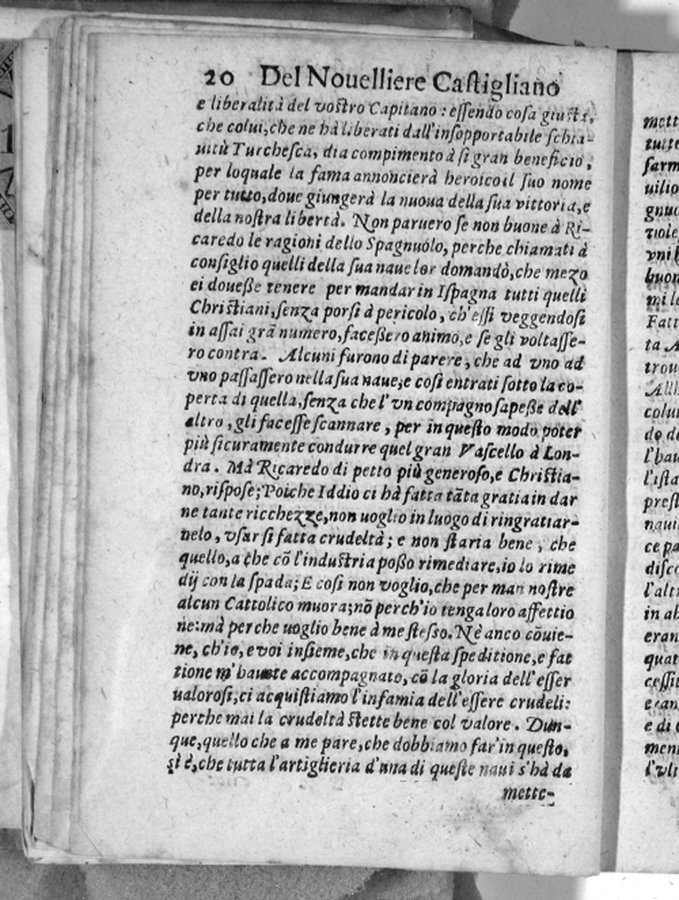 20 Del Nouelliere Castigliano
e liberalità del vostro Capitano : eſſendo coſa giuſta,
che colui, che ne hà liberati dall'inſopportabile ſchia-
uitù Turcheſca, dia compimento à ſi gran beneficio,
per loquale la fama annoncierà heroico il ſuo nome
per tutto, doue giungerà la nuoua della ſua vittoria, e
della noſtra libertà. Non paruero ſe non buone à Ri-
caredo le ragioni dello Spagnuolo, perche chiamati à
conſiglio quelli della ſua naue lor domandò, che mezo
ei doueße tenere per mandar in Iſpagna tutti quelli
Chriſtiani, ſenza porſi à pericolo, ch'eſſi veggendoſi
in aſſai grã numero, faceßero animo, e ſe gli voltaſſe-
ro contra. Alcuni furono di parere, che ad vno ad
vno paſſaſſero nella ſua naue, e coſi entrati ſotto la co-
perta di quella, ſenza che l'vn compagno ſapeße dell'
altro, gli faceſſe ſcannare, per in queſto modo poter
più ſicuramente condurre quel gran Vaſcello à Lon-
dra. Mà Ricaredo di petto più generoſo, e Chriſtia-
no, riſpoſe; Poiche Iddio ci hà fatta tãta gratia in dar
ne tante ricchezze, non uoglio in luogo di ringratiar-
nelo, vſar ſi fatta crudeltà; e non ſtaria bene, che
quello, a che cõ l'induſtria poßo rimediare, io lo rime
dij con la ſpada; E coſi non voglio, che per man noſtre
alcun Cattolico muora; nõ perch'io tenga loro affettio
ne: mà perche uoglio bene à me ſteſſo. Nè anco cõuie-
ne, ch'io, e voi inſieme, che in queſta ſpeditione, e fat
tione m'hauete accompagnato, cõ la gloria dell'eſſer
ualoroſi, ci acquiſtiamo l'infamia dell'eſſere crudeli:
perche mai la crudeltà ſtette bene col valore. Dun-
que, quello che a me pare, che dobbiamo far'in queſto,
ſi è, che tutta l'artiglieria d'una di queſte naui s'hà da
mette-
mett
tutte
ſarm
uilio
gnuo
viole
vni
buon
mi lo
Fatt
ta
trou
colui
do de
l'bau
l'iſta
preſt
naui
ce pa
diſco
l'alt
in ab
eran
quat
ceſſi
e di
men
l'vl